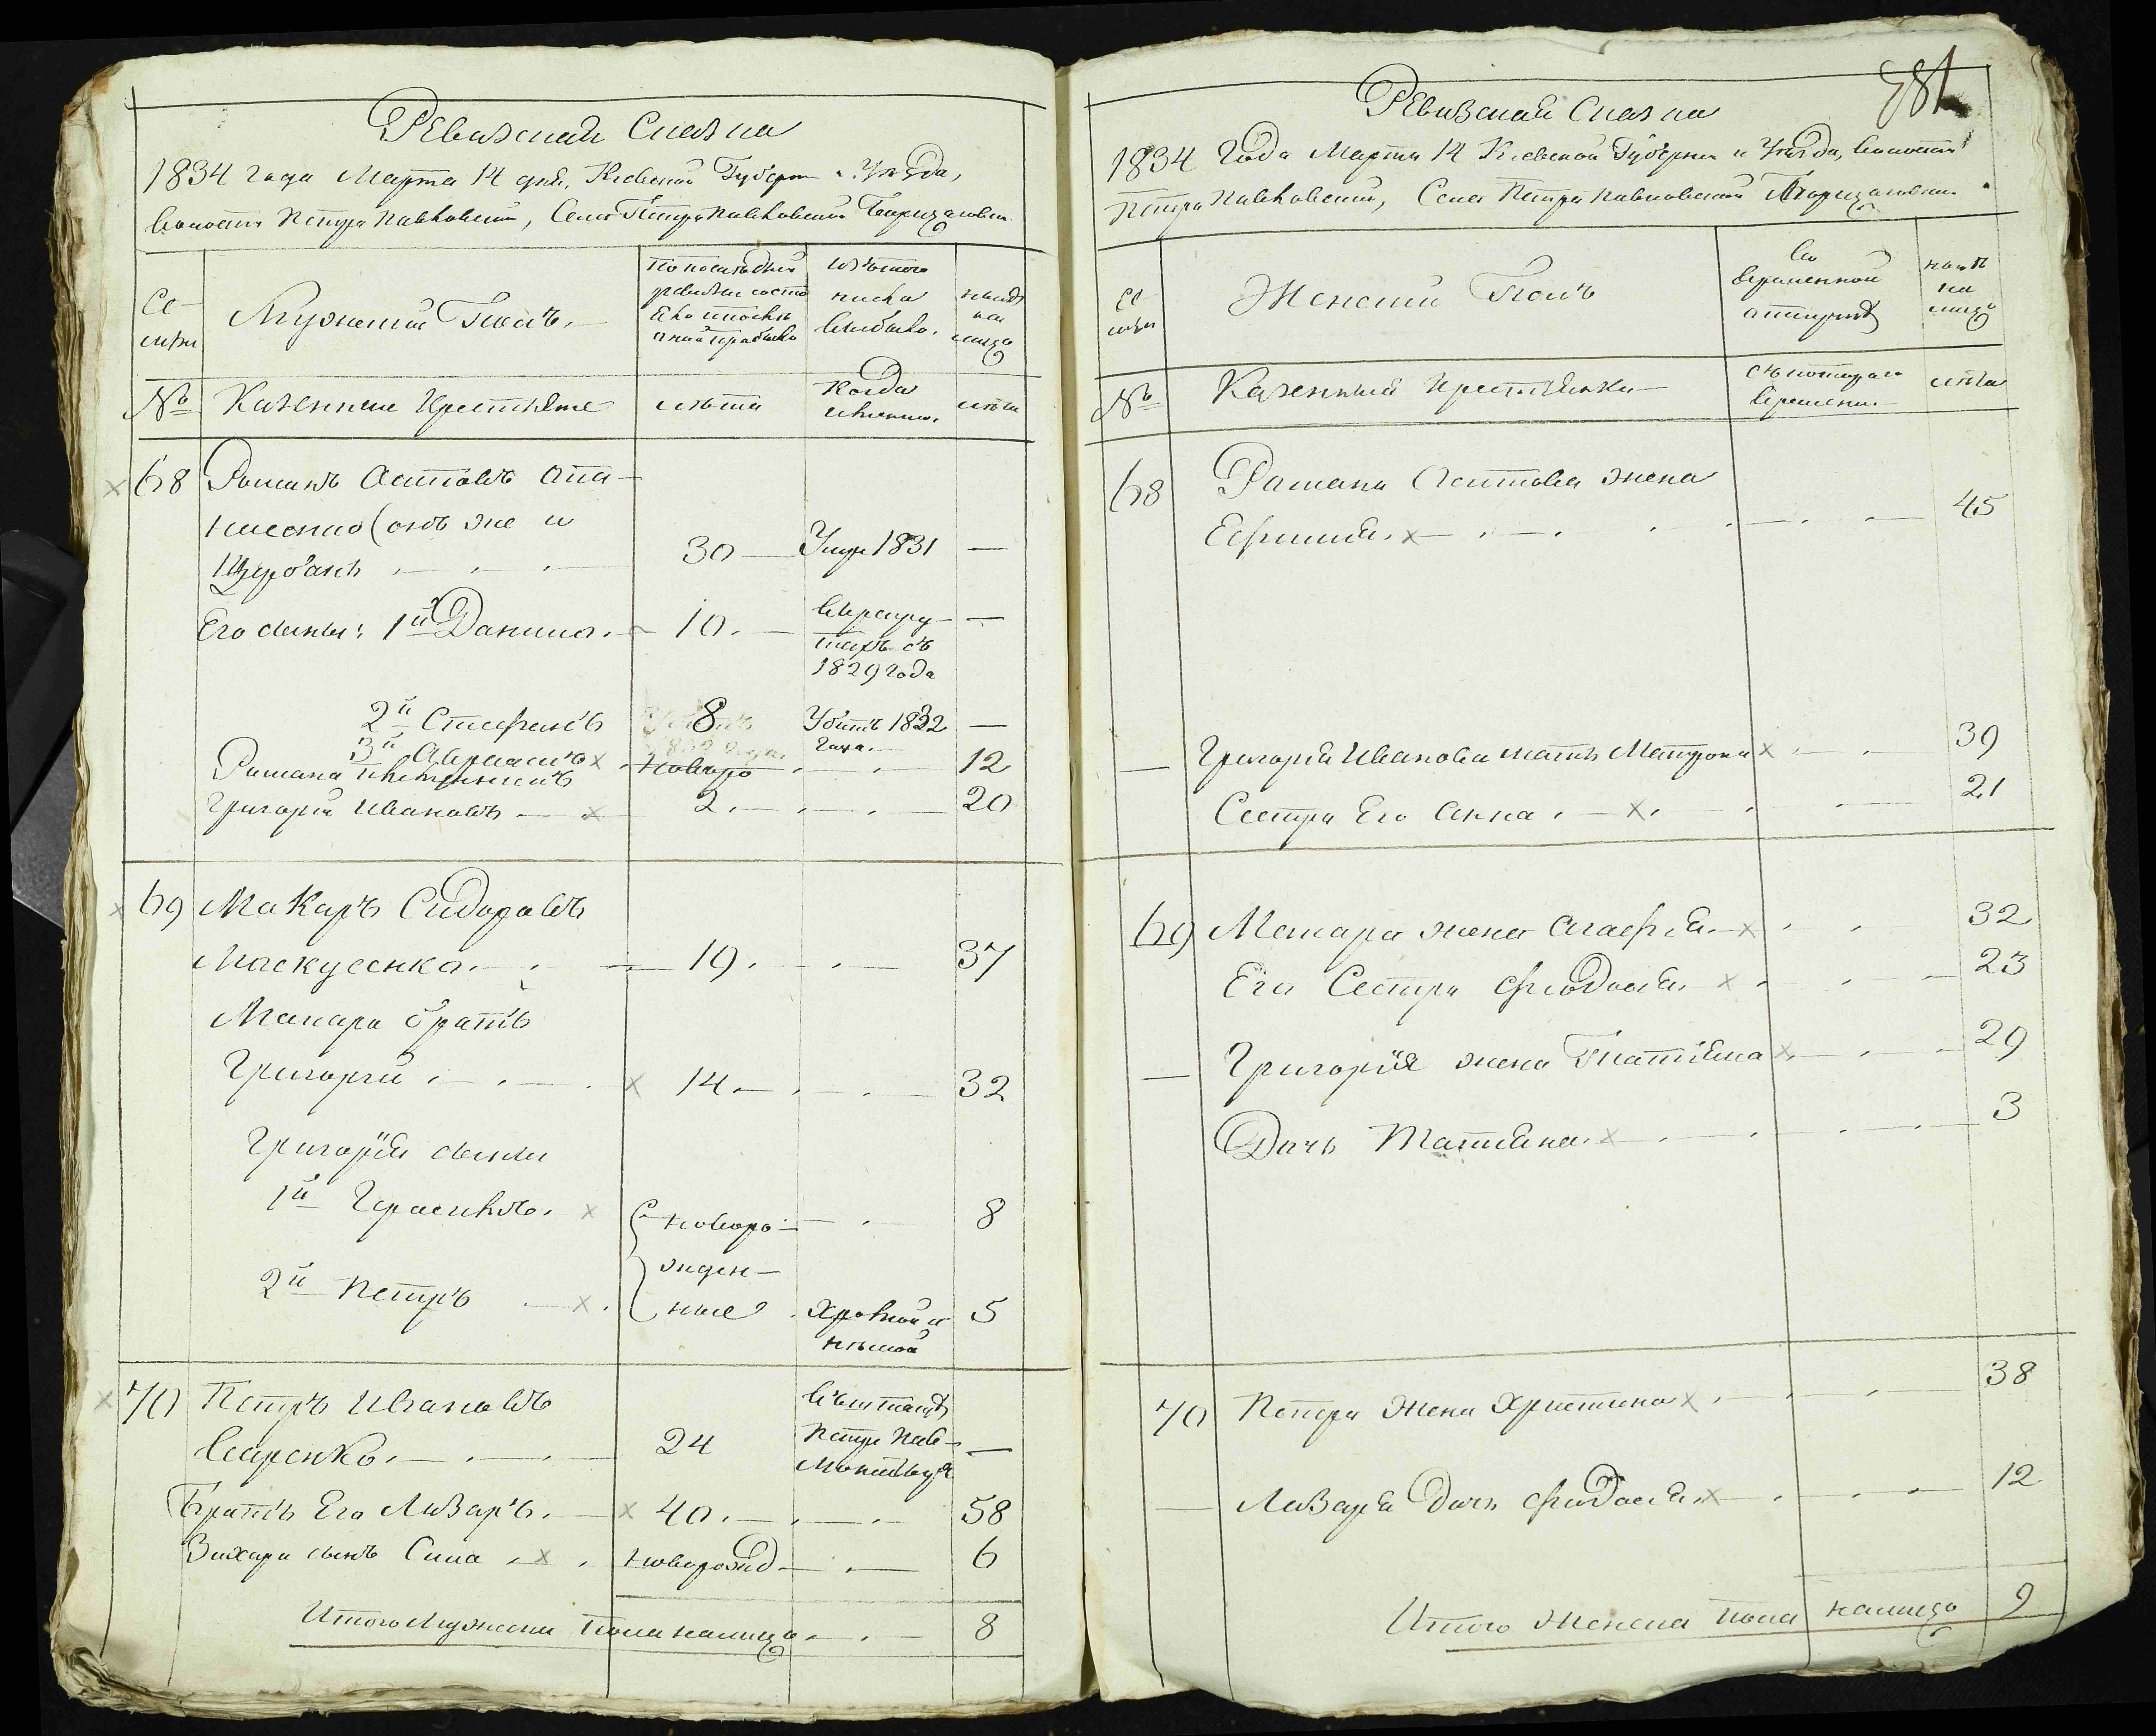 Ревизская Сказка
1834 года Марта 14 дня, Киевской Губерн и Уезда,
Волости Петропавловской, Села Петропавловской Борщаговки
Се-
мьи
Мужеский Полъ.
По последней
ревизии состо
яло и после
оной прибыло
Изъ того
числа
выбыло.
ныне
на
лицо
№
Казенные Крестьяне
лета
Когда
именно.
лета
68 Романъ Остаповъ Опа-
(онъ же и
Щербань 30 Умре 1831 —
Его сыны: 1й Данило. 10. —
въ рекру-
тахъ съ
1829 года
2й Стефанъ 8 Убитъ 1832 —
года.
3й Аврамъ х новоро 12
Романа племянникъ
Григорий Ивановъ х 2. 20
69 Макаръ Сидоровъ
19. 37
Макара братъ
Григорий х 14. 32
Григорія сыны
1й Герасимъ. х новоро- 8
жден-
2й Петръ х. ные Хромой и 5
немой
70 Петръ Ивановъ
24 Петро Пав- —
Братъ Его Лазарь. х 40. 58
Захара сынъ Сила х новорожд 6
Итого Мужеска Пола налицо 8
381
Ревизская Сказка
1834 года Марта 14 Киевской Губернии и Уезда, Волости
Петропавловской, Села Петропавловской Борщаговки.
Се
мьи
Женский Полъ
Во
временной
отлучке
ныне
на
лицо
№
Казенныя Крестьянки
съ котораго
времени.
лета
68 Романа Остапова жена
Ефимия. х 45
— Григорія Иванова мать Матрона х 39
Сестра Его Анна. х. 21
69 Макара жена Агафія. х 32
Его Сестра Феодосія. х 23
— Григорія жена Татіяна х. 29
Дочь Татіяна. х 3
70 Петра жена Христина х. 38
— Лазаря дочь Феодосія. х 12
Итого Женска пола налицо 9